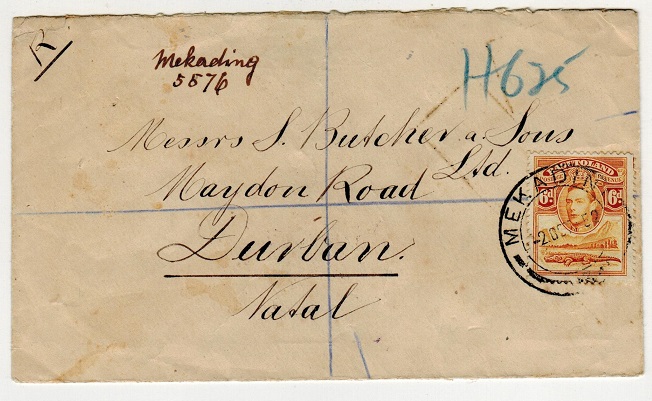 R
Mekading
5576
H625
Messrs S. Butcher a Sons
Ltd.
Maydon Road
Durban.
Natal
6d. 6d.
MEKADING